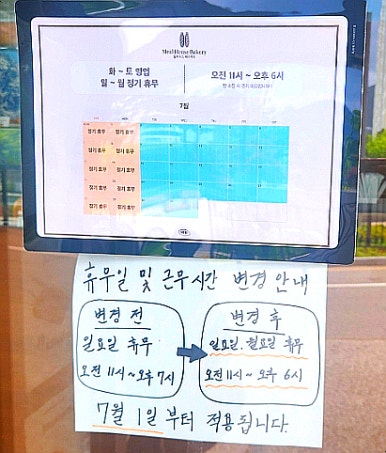 MealHouse Bakery
화 ~ 토 영업
일 ~ 월 정기 휴무
오전 11시 ~ 오후 6시
7월
정기 휴무 정기 휴무
정기 휴무 정기 휴무
정기 휴무 정기 휴무
정기 휴무 정기 휴무
정기 휴무 정기 휴무
휴무일 및 근무시간 변경 안내
변경 전
일요일 휴무
오전 11시~오후 7시
변경 후
일요일, 월요일 휴무
오전 11시~오후 6시
7월 1일부터 적용됩니다.